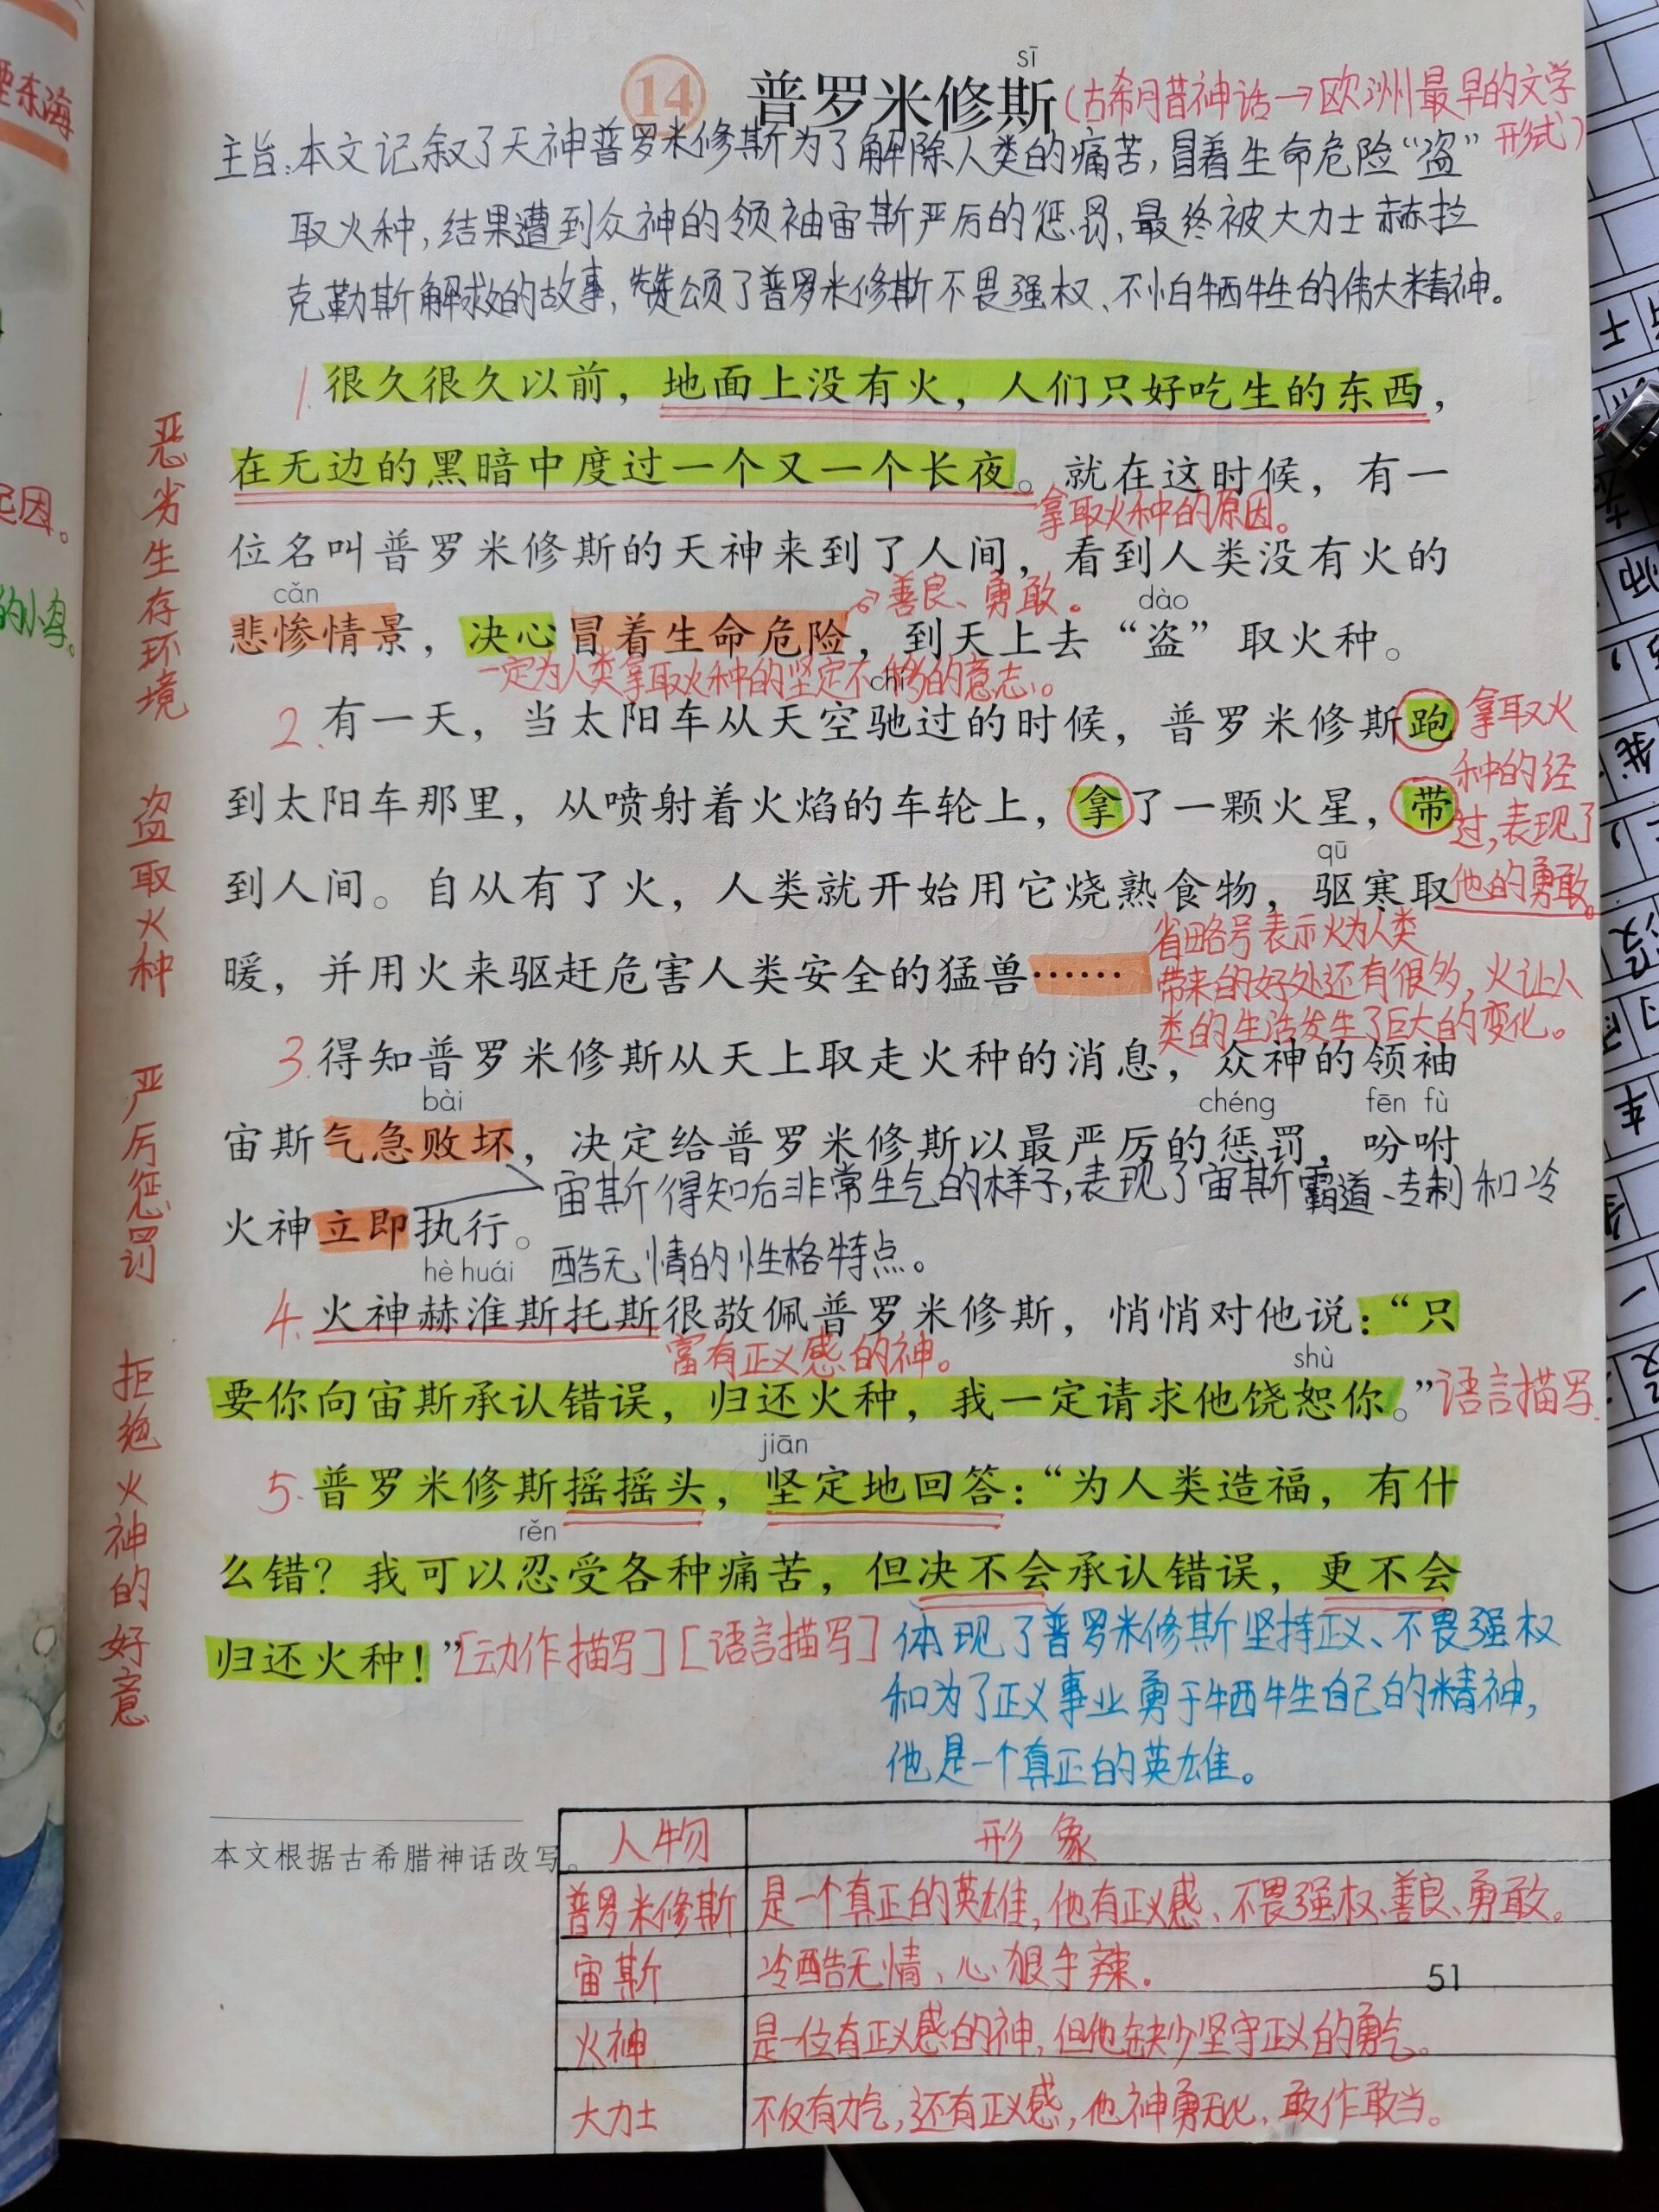 sī
14 普罗米修斯(古希腊神话→欧洲最早的文学
形式)
主旨:本文记叙了天神普罗米修斯为了解除人类的痛苦,冒着生命危险“盗”
取火种,结果遭到众神的领袖宙斯严厉的惩罚,最终被大力士赫拉
克勒斯解救的故事,赞颂了普罗米修斯不畏强权、不怕牺牲的伟大精神。
1.很久很久以前,地面上没有火,人们只好吃生的东西,
在无边的黑暗中度过一个又一个长夜。就在这时候,有一
拿取火种的原因。
位名叫普罗米修斯的天神来到了人间,看到人类没有火的
cǎn
善良、勇敢。
dào
悲惨情景,决心冒着生命危险,到天上去“盗”取火种。
一定为人类拿取火种的坚定不移的意志。
chí
2.有一天,当太阳车从天空驰过的时候,普罗米修斯跑
到太阳车那里,从喷射着火焰的车轮上,拿了一颗火星,带
拿取火
种的经
过,表现了
他的勇敢。
qū
到人间。自从有了火,人类就开始用它烧熟食物,驱寒取
暖,并用火来驱赶危害人类安全的猛兽……
省略号表示火为人类
带来的好处还有很多,火让人
类的生活发生了巨大的变化。
3.得知普罗米修斯从天上取走火种的消息,众神的领袖
bài chéng fēn fù
宙斯气急败坏,决定给普罗米修斯以最严厉的惩罚,吩咐
火神立即执行。
宙斯得知后非常生气的样子,表现了宙斯霸道、专制和冷
酷无情的性格特点。
hè huái
4.火神赫淮斯托斯很敬佩普罗米修斯,悄悄对他说:“只
富有正义感的神。
shù
要你向宙斯承认错误,归还火种,我一定请求他饶恕你。”语言描写.
jiān
5.普罗米修斯摇摇头,坚定地回答:“为人类造福,有什
rěn
么错?我可以忍受各种痛苦,但决不会承认错误,更不会
归还火种!”[动作描写][语言描写]
体现了普罗米修斯坚持正义、不畏强权
和为了正义事业勇于牺牲自己的精神,
他是一个真正的英雄。
恶劣生存环境
盗取火种
严厉惩罚
拒绝火神的好意
本文根据古希腊神话改写。
人物 形象
普罗米修斯 是一个真正的英雄,他有正义感、不畏强权、善良、勇敢。
宙斯 冷酷无情、心狠手辣.
51
火神 是一位有正义感的神,但他缺少坚守正义的勇气。
大力士 不仅有力气,还有正义感,他神勇无比,敢作敢当。
东海
起因。